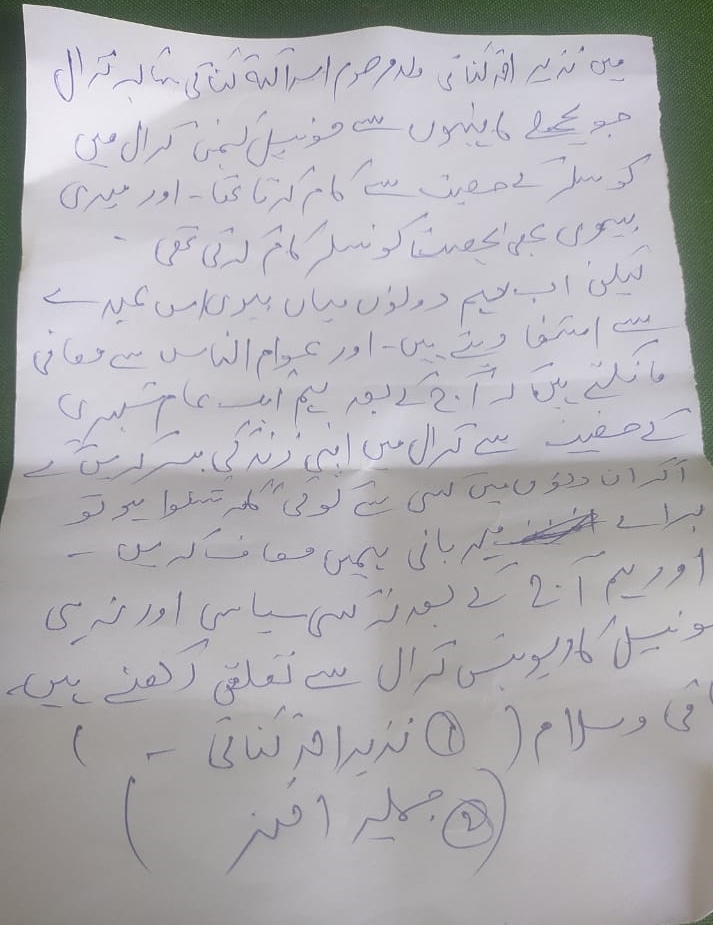 میں نذیر احمد گنائی ولد مرحوم اسداللہ گنائی ترال
جو پچھلے مہینوں سے میونسپل کمیٹی ترال میں
کونسلر کے حصیت سے کام کرتا تھا - اور میری
بیوی بھی بحصیت کونسلر کام کرتی تھی -
لیکن اب ہم دونوں میاں بیوی اس عہدے
سے استفا دیتے ہیں - اور عوام الناس سے معافی
مانگتے ہیں کہ آج کے بعد ہم ایک عام شہری
کے حصیت سے ترال میں اپنی زندگی بسر کریں گے
اگر ان دنوں میں کسی سے کوئی گلہ شکوا ہو تو
براے مہربانی ہمیں معاف کریں -
اور ہم آج کے بعد نہ کسی سیاسی اور نہ ہی
میونسپل ترال سے تعلق رکھتے ہیں -
باقی وسلام ( ① نذیر احمد گنائی - )
( ② جمیلہ اختر )